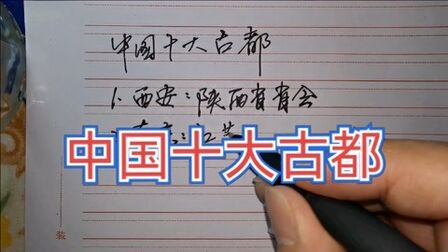 中国十大古都
1. 西安：陕西省省会
中国十大古都
装